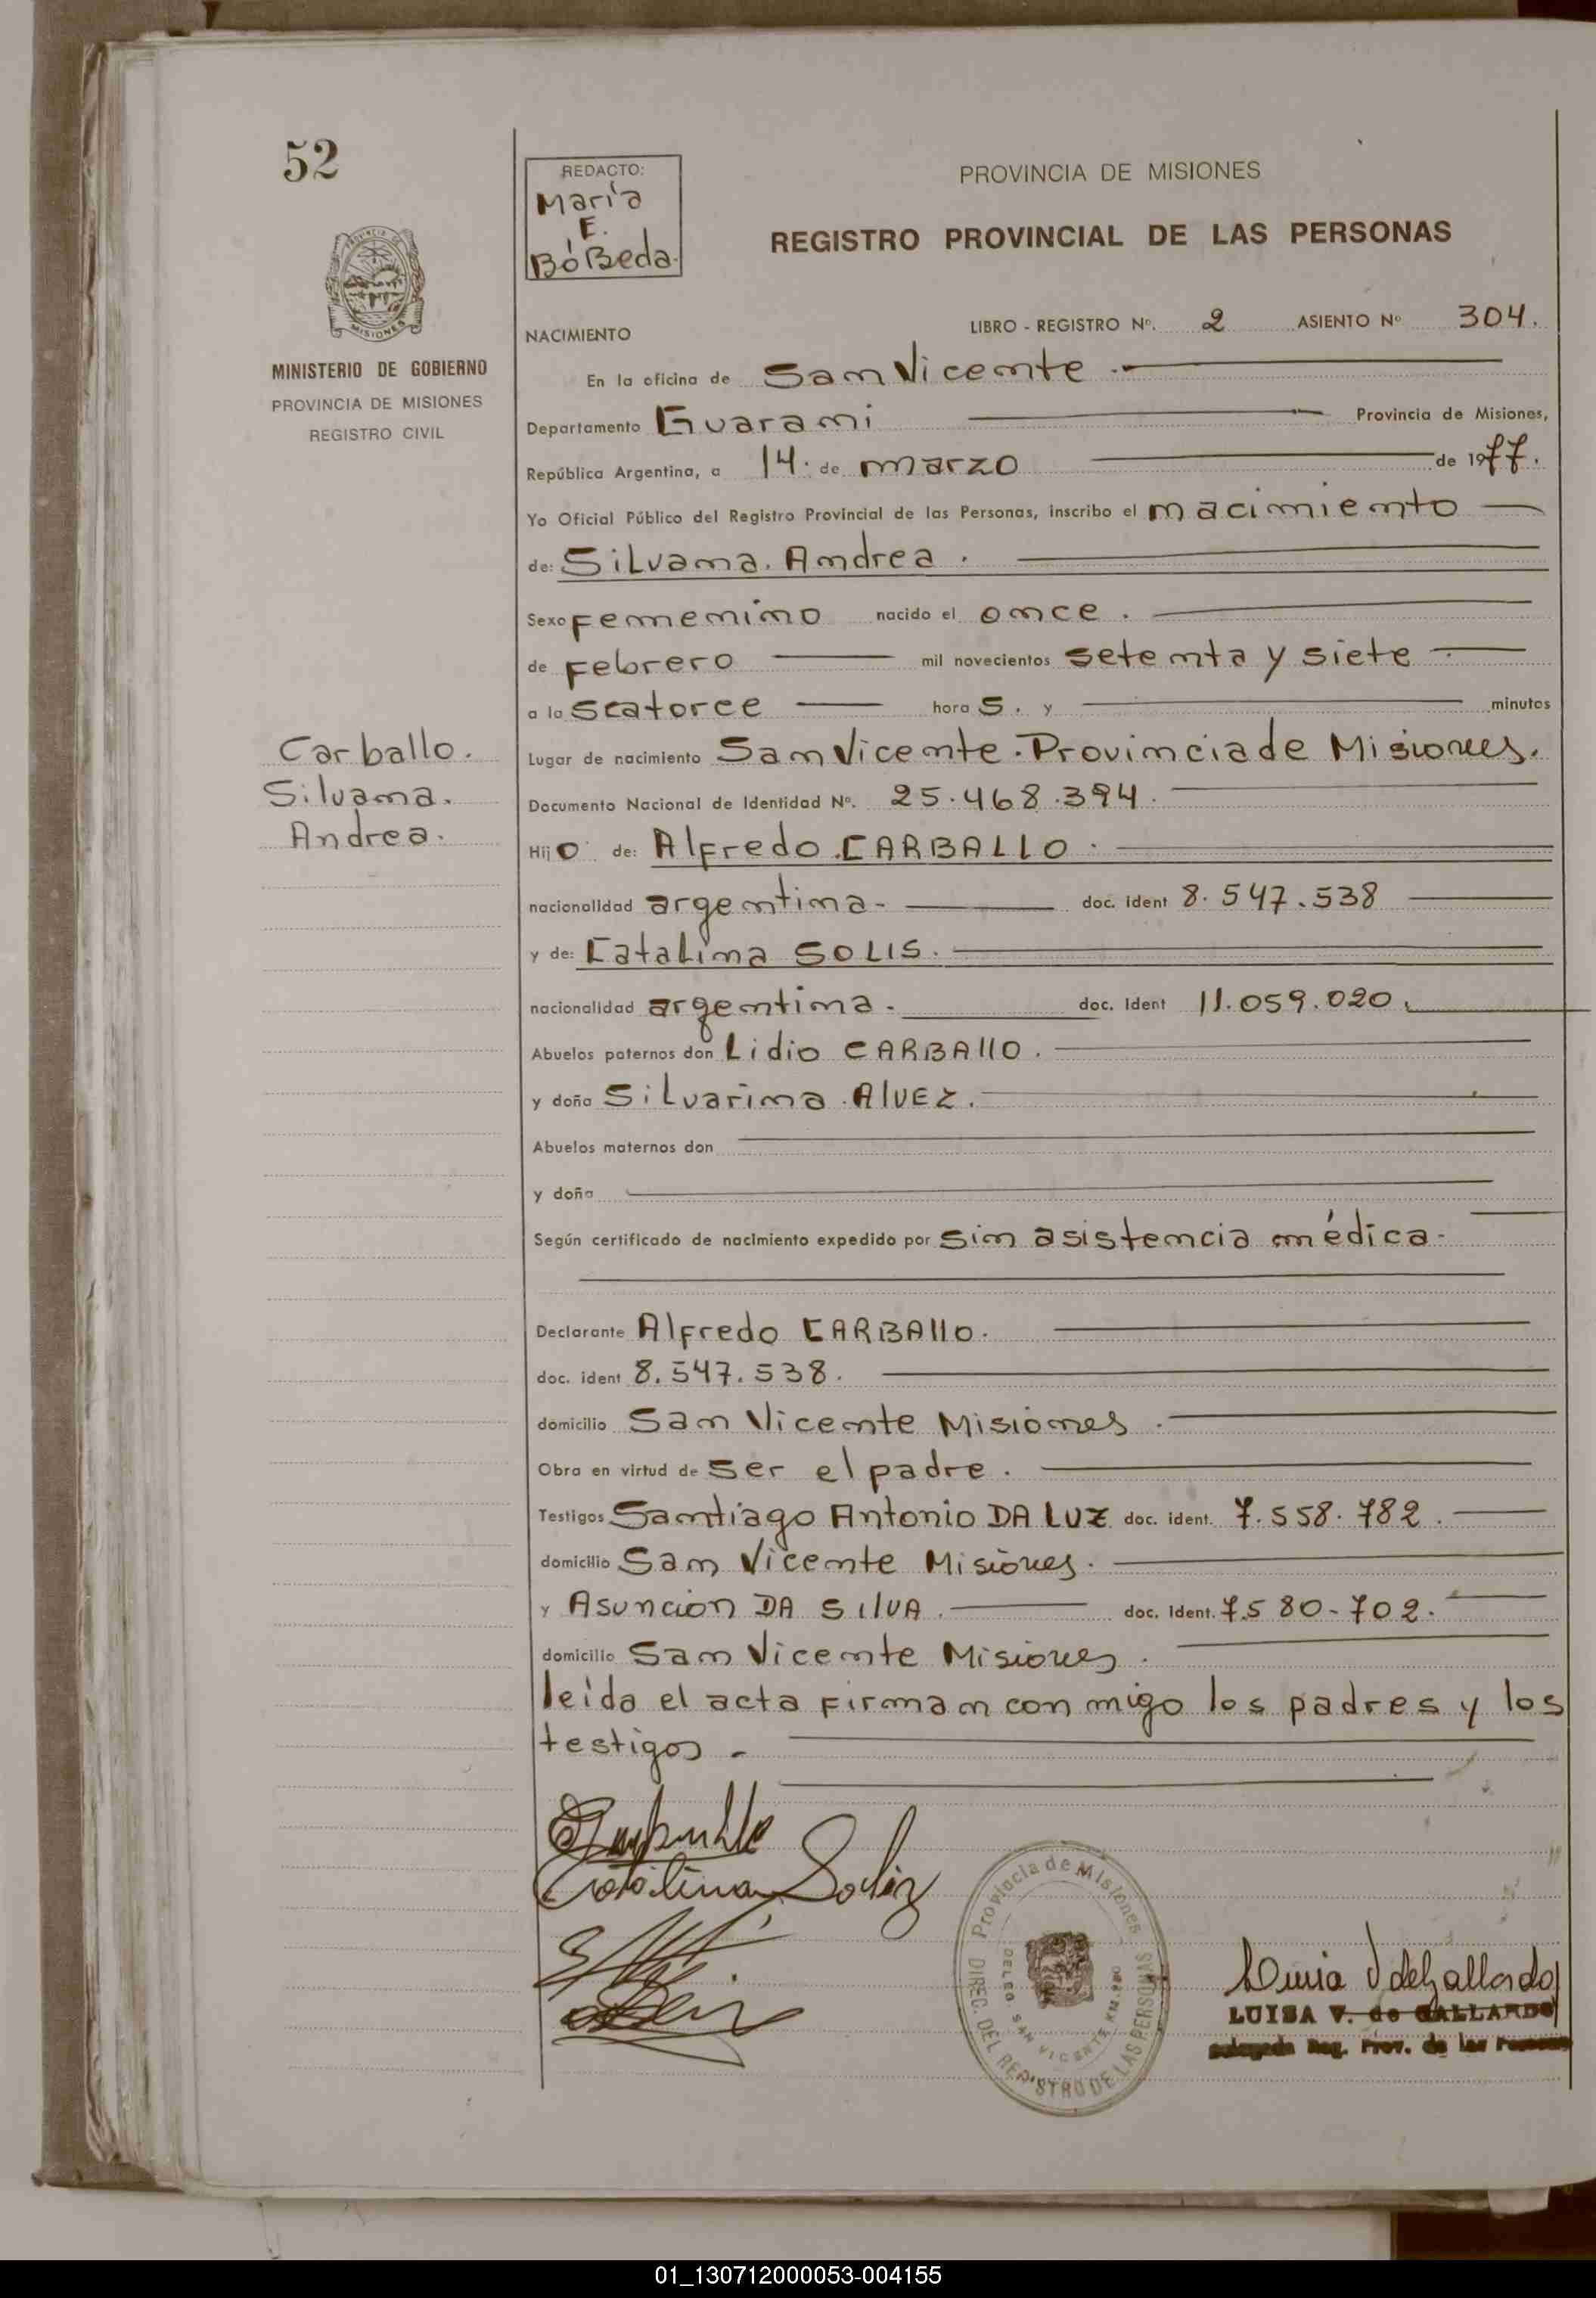 52
REDACTO:
María
E.
BóBeda.
PROVINCIA DE MISIONES
REGISTRO PROVINCIAL DE LAS PERSONAS
MINISTERIO DE GOBIERNO
PROVINCIA DE MISIONES
REGISTRO CIVIL
NACIMIENTO LIBRO - REGISTRO Nº. 2 ASIENTO Nº 304.
En la oficina de San Vicente
Departamento Guarani Provincia de Misiones,
República Argentina, a 14. de marzo de 1977.
Yo Oficial Público del Registro Provincial de las Personas, inscribo el nacimiento
de: Silvana. Andrea.
Sexo Femenino nacido el once.
de Febrero mil novecientos setenta y siete
a la s catorce hora s. y minutos
Lugar de nacimiento San Vicente. Provincia de Misiones.
Documento Nacional de Identidad Nº. 25.468.394.
Carballo.
Silvana.
Andrea.
Hij o de: Alfredo. CARBALLO.
nacionalidad argentina- doc. ident 8.547.538
y de: Catalina SOLIS.
nacionalidad argentina- doc. ident 11.059.020.
Abuelos paternos don Lidio CARBAllO.
y doña Silvarina. AlVEZ.
Abuelos maternos don
y doña
Según certificado de nacimiento expedido por sin asistencia médica-
Declarante Alfredo CARBAllO.
doc. ident 8.547.538.
domicilio San Vicente Misiones.
Obra en virtud de ser el padre.
Testigos Santiago Antonio DA LUZ doc. ident. 7.558.782.
domicilio San Vicente Misiones.
y Asuncion DA SIlVA. doc. ident. 7.580-702.
domicilio San Vicente Misiones.
leida el acta firman con migo los padres y los
testigos-
Catalina Soliz
Provincia de Misiones
DIREC. DEL REGISTRO DE LAS PERSONAS
Luisa V de Gallardo
LUISA V. de GALLARDO
Delegada Reg. Prov. de las Personas
01_130712000053-004155